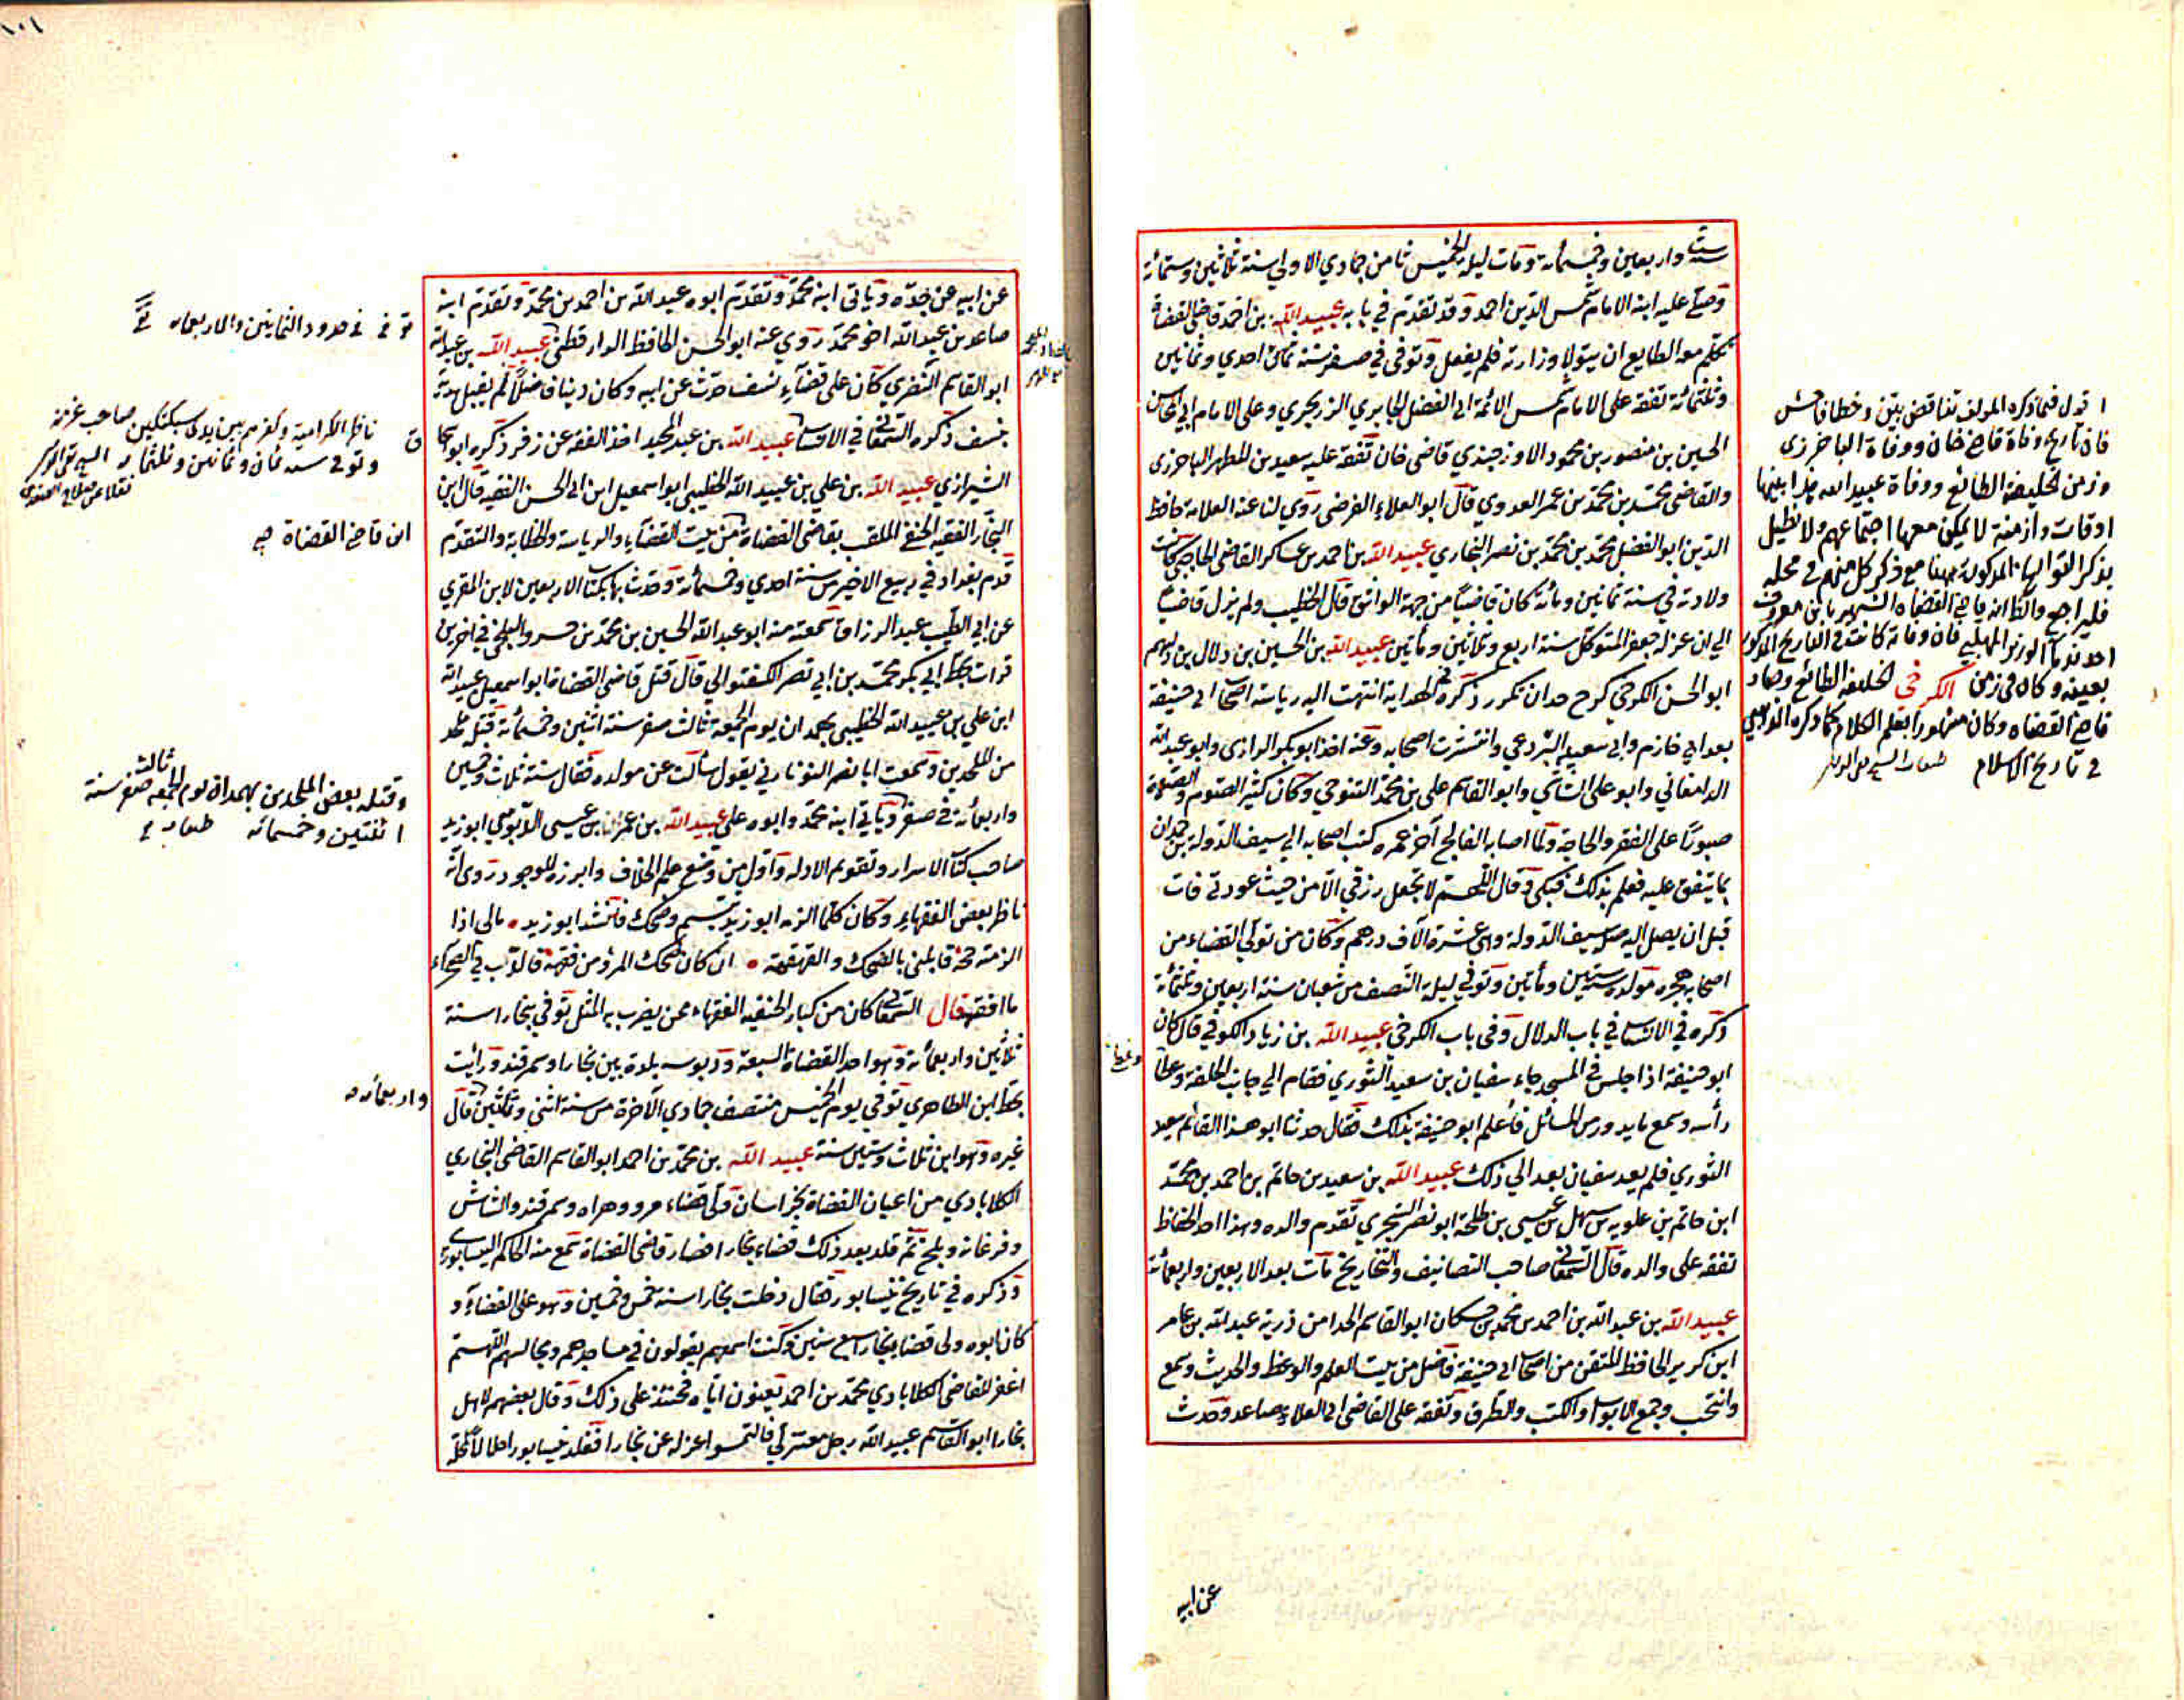 ست واربعين وخمسمائة ومات ليلة الخميس ثامن جمادي الاولي سنة ثلاثين وستمائة
وصلي عليه ابنه الامام شمس الدين احمد وقد تقدم في بابه عبيد الله بن احمد قاضي القضاة
تكلم معه الطايع ان يتولا وزارته فلم يفعل وتوفي في صفر سنة احدي وثمانين
وثلثمائة تفقه على الامام شمس الائمة ابي الفضل الجابري الزرنجري وعلى الامام ابي المحاسن
الحسين بن منصور بن محمود الاوزجندي قاضي خان تفقه عليه سعيد بن المطهر الباخرزي
والقاضي محمد بن محمد بن عمر العدوي قال ابو العلاء الفرضي روي لنا عنه العلامة حافظ
الدين ابو الفضل محمد بن محمد بن نصر البخاري عبيد الله بن احمد بن عساكر القاضي كانت
ولادته في سنة ثمانين ومائة كان قاضيا من جهة الواثق قال الخطيب ولم يزل قاضيا
الي ان عزله جعفر المتوكل سنة اربع وثلاثين ومأتين عبيد الله بن الحسين بن دلال بن دلهم
ابو الحسن الكرخي كرخ جدان تكرر ذكره في الهداية انتهت اليه رياسة اصحاب ابي حنيفة
بعد ابي خازم وابي سعيد البردعي وانتشرت اصحابه وعنه اخذ ابو بكر الرازي وابو عبد الله
الدامغاني وابو علي الشاشي وابو القاسم علي بن محمد التنوخي وكان كثير الصوم والصلوة
صبورا على الفقر والحاجة ولما اصابه الفالج آخر عمره كتب اصحابه الي سيف الدولة بن حمدان
بما ينفق عليه فعلم بذلك فبكى وقال اللهم لا تجعل رزقي الا من حيث عودتني فات
قبل ان يصل اليه صلة سيف الدولة وهي عشرة آلاف درهم وكان من تولي القضاء من
اصحابه هجره مولده ستين ومأتين وتوفي ليلة النصف من شعبان سنة اربعين وثلثمائة
ذكره في الانساب في باب الدلال وفي باب الكرخي عبيد الله بن زياد الكوفي قال كان
ابو حنيفة اذا جلس في المسجد جاء سفيان بن سعيد الثوري فقام الي جانب الحلقة وغطا
رأسه وسمع ما يدور من المسائل فأعلم ابو حنيفة بذلك فقال حدثنا ابو هذا القائم سعيد
الثوري فلم يعد سفيان بعد الي ذلك عبيد الله بن سعيد بن حاتم بن احمد بن محمد
ابن حاتم بن علويه بن سهل بن عيسي بن طلحة ابو نصر السجزي تقدم والده وهذا احد الحفاظ
تفقه على والده قال السمعاني صاحب التصانيف والتخاريج مات بعد الاربعين واربعمائة
عبيد الله بن عبد الله بن احمد بن محمد بن حسكان ابو القاسم الحذا من ذرية عبد الله بن عامر
ابن كريز الحافظ المتقن من اصحاب ابي حنيفة فاضل من بيت العلم والوعظ والحديث وسمع
وانتخب وجمع الابواب والكتب والطرق وتفقه على القاضي ابي العلاء صاعد وحدث
وغطا
اقول فيما ذكره المولف تناقض بين وخطا فاحش
فان تاريخ وفاة قاضي خان ووفاة الباخرزي
وزمن الخليفة الطائع ووفاة عبيد الله هذا بينها
اوقات وازمنة لا يمكن معها اجتماعهم ولا نطيل
بذكر التواريخ المذكورة ههنا مع ذكر كل منهم في محله
فليراجع والظاهر انه قاضي القضاة الشهير بابن معروف
احد ندماء الوزير المهلبي فان وفاته كانت في التاريخ المذكور
بعينه وكان في زمن الكرخي الخليفة الطائع وصار
قاضي القضاه وكان مشهورا بعلم الكلام كما ذكره الذهبي
في تاريخ الاسلام
عن ابيه
١٠١
عن ابيه عن جده ويأتي ابنه محمد وتقدم ابوه عبد الله بن احمد بن محمد وتقدم ابنه
صاعد بن عبيد الله اخو محمد روي عنه ابو الحسن الحافظ الدارقطني عبيد الله بن عبد الله
ابو القاسم النضري كان على قضاء نسف حدث عن ابيه وكان دينا فاضلا لم يقبل هدية
بنسف ذكره السمعاني في الانساب عبيد الله بن عبد المجيد اخذ الفقه عن زفر ذكره ابو اسحاق
الشيرازي عبيد الله بن علي بن عبيد الله الخطيبي ابو اسمعيل ابن ابي الحسن الفقيه قال ابن
النجار الفقيه الحنفي الملقب بقاضي القضاة من بيت القضاء والرياسة والخطابة والتقدم
قدم بغداد في ربيع الاخير سنة احدي وخمسمائة وحدث بها بكتاب الاربعين لابن المقري
عن ابي الطيب عبد الرزاق سمعته منه ابو عبد الله الحسين بن محمد بن خسرو البلخي في آخرين
قرات بخط ابي بكر محمد بن ابي نصر اللفتواني قال قتل قاضي القضاة ابو اسمعيل عبيد الله
ابن علي بن عبيد الله الخطيبي بهمدان يوم الجمعة ثالث صفر سنة اثنين وخمسمائة قتله
من الملحدين وسمعت ابا نصر اليونارتي يقول سألت عن مولده فقال سنة ثلاث وخمسين
واربعمائة في صفر ويأتي ابنه محمد وابوه علي عبيد الله بن عمر بن عيسى الدبوسي ابو زيد
صاحب كتاب الاسرار وتقويم الادلة واول من وضع علم الخلاف وابرزه للوجود روى انه
ناظر بعض الفقهاء وكان كلما الزمه ابو زيد تبسم وضحك فأنشد ابو زيد مالي اذا
الزمته حجة قابلني بالضحك والقهقهة ان كان ضحك المرء من فقهه فالدب في الصحراء
ما افقهه قال السمعاني كان من كبار الحنفيه الفقهاء ممن يضرب به المثل توفي ببخارا سنة
ثلاثين واربعمائة وهو احد القضاة السبعة ودبوسه بلدة بين بخارا وسمرقند ورأيت
بخط ابن الظاهري توفي يوم الخميس منتصف جمادي الآخرة من سنة اثني وثلثين قال
غيره وهو ابن ثلاث وستين سنة عبيد الله بن محمد بن احمد ابو القاسم القاضي البخاري
الكلابادي من اعيان القضاة بخراسان ولي قضاء مرو وهراه وسمرقند والشاش
وفرغانه وبلخ ثم قلد بعد ذلك قضاء بخارا فصار قاضي القضاة سمع منه الحاكم النيسابوري
وذكره في تاريخ نيسابور فقال دخلت بخارا سنة خمس وخمسين وهو على القضاء و
كان ابوه ولي قضا بخارا سبع سنين وكنت اسمعهم يقولون في مساجدهم ومجالسهم اللهم
اغفر للقاضي الكلابادي محمد بن احمد يعنون اباه فحسدته على ذلك وقال بعضهم لاهل
بخارا ابو القاسم عبيد الله رجل معتزلي فالتمسوا عزله عن بخارا فقلد نيسابور
توفي في حدود الثمانين والاربعمائة
ناظر الكرامية وكفرهم بين يدي سبكتكين صاحب غزنة
وتوفي سنة ثمان وثمانين وثلثمائة
ابن قاضي القضاة
وقتله بعض الملحدين بهمدان يوم الجمعة ثالث صفر سنة
اثنتين وخمسمائه
واربعمائة